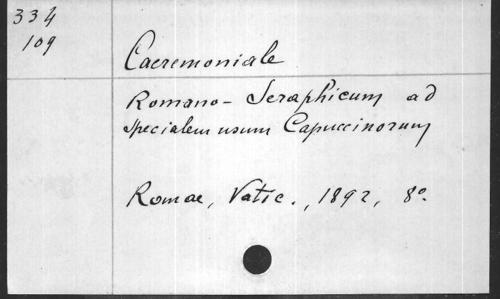 334
109
Caeremoniale
Romano-Seraphicum ad
specialem usum Capuccinorum
Romae, Vatic., 1892, 8º.